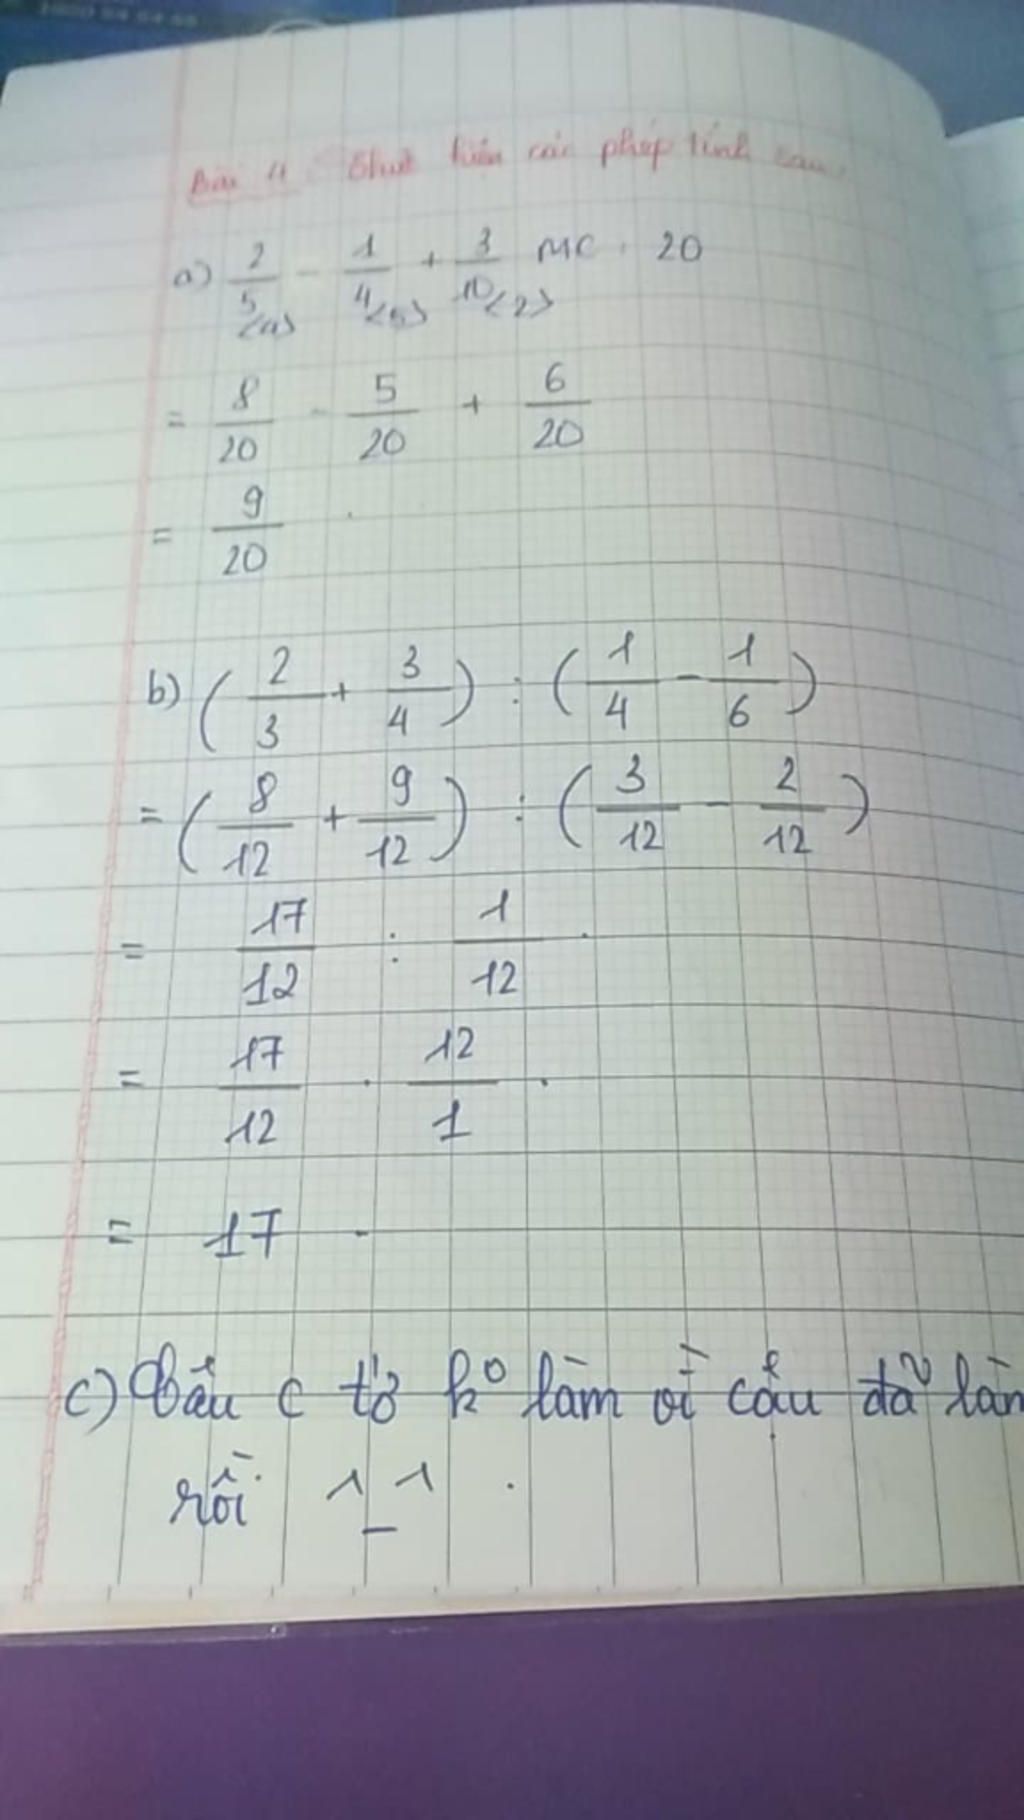 1800 54 54 55
Bài 4 : Thực hiện các phép tính sau
a) 2/5 - 1/4 + 3/10 MC : 20
<4> <5> <2>
= 8/20 - 5/20 + 6/20
= 9/20
b) ( 2/3 + 3/4 ) : ( 1/4 - 1/6 )
= ( 8/12 + 9/12 ) : ( 3/12 - 2/12 )
= 17/12 : 1/12 .
= 17/12 . 12/1 .
= 17 .
c) Câu c tớ k° làm vì cậu đã làm
rồi ^_^ .